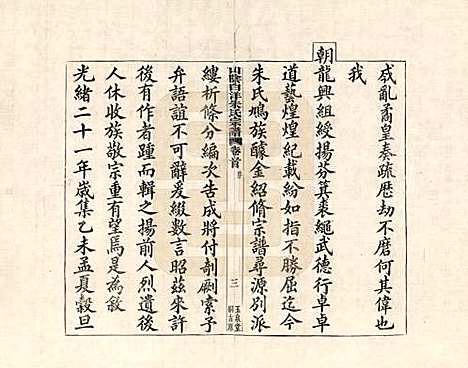 戡亂矞皇奏疏歷劫不磨何其偉也
我
朝龍興組綬揚芬箕裘繩武德行卓卓
道藝煌煌紀載紛如指不勝屈迄今
朱氏鳩族醵金紹脩宗譜尋源別派
山陰白洋朱氏宗譜 卷首 序
三
玉泉堂
縷析條分編次告成將付剞劂索予
弁語誼不可辭爰綴數言昭茲來許
後有作者踵而輯之揚前人烈遺後
人休收族敬宗重有望焉是為敘
光緒二十一年歲集乙未孟夏穀旦